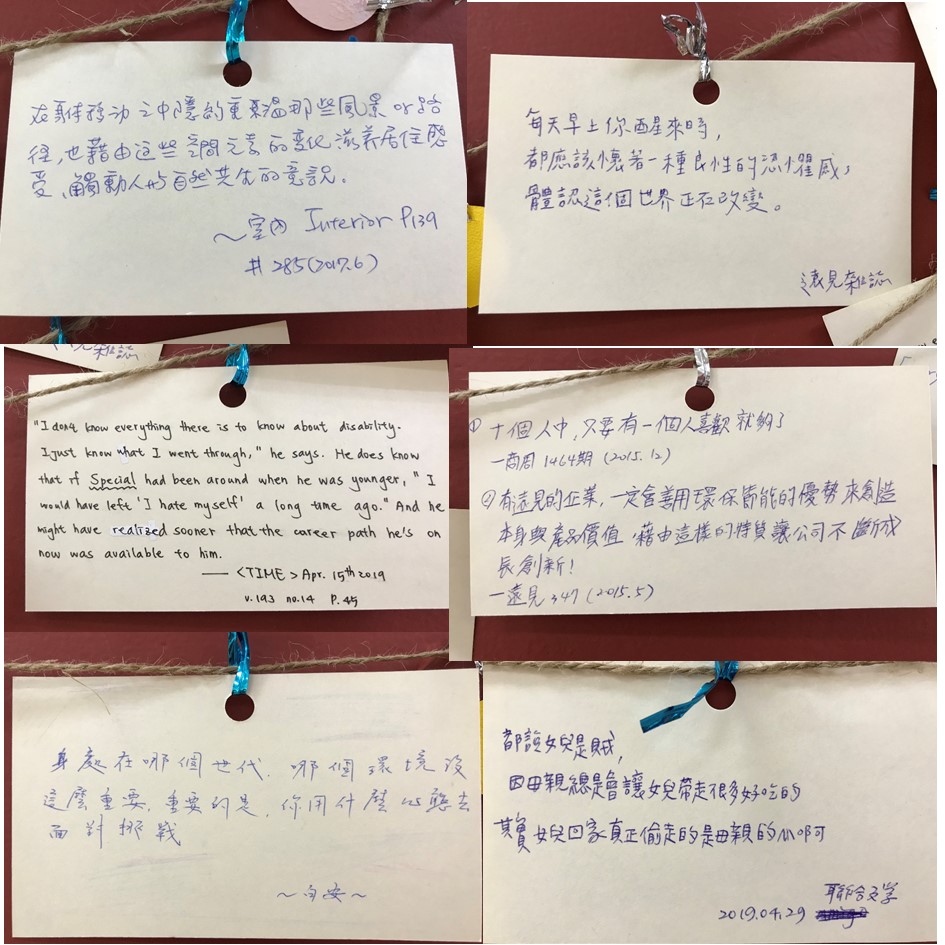 在身體移動之中隱約重溫那些風景or路
徑,也藉由這些空間元素的變化滋養居住感
受、觸動人與自然共生的意識。
～室內 Interior P139
#285(2017.6)
每天早上你醒來時,
都應該懷著一種良性的恐懼感,
體認這個世界正在改變。
遠見雜誌
見雜誌
"I don't know everything there is to know about disability.
I just know what I went through," he says. He does know
that if Special had been around when he was younger, "I
would have left 'I hate myself' a long time ago." And he
might have realized sooner that the career path he's on
now was available to him.
—— <TIME> Apr. 15th 2019
v.193 no.14 P.45
① 十個人中,只要有一個人喜歡就夠了
—商周 1464期 (2015.12)
② 有遠見的企業,一定會善用環保節能的優勢來創造
本身與產品價值,藉由這樣的特質讓公司不斷成
長創新!
—遠見 347 (2015.5)
身處在哪個世代、哪個環境沒
這麼重要,重要的是,你用什麼心態去
面對挑戰
～白安～
都說女兒是賊,
因母親總是會讓女兒帶走很多好吃的
其實女兒回家真正偷走的是母親的心啊
聯合文學
2019.04.29